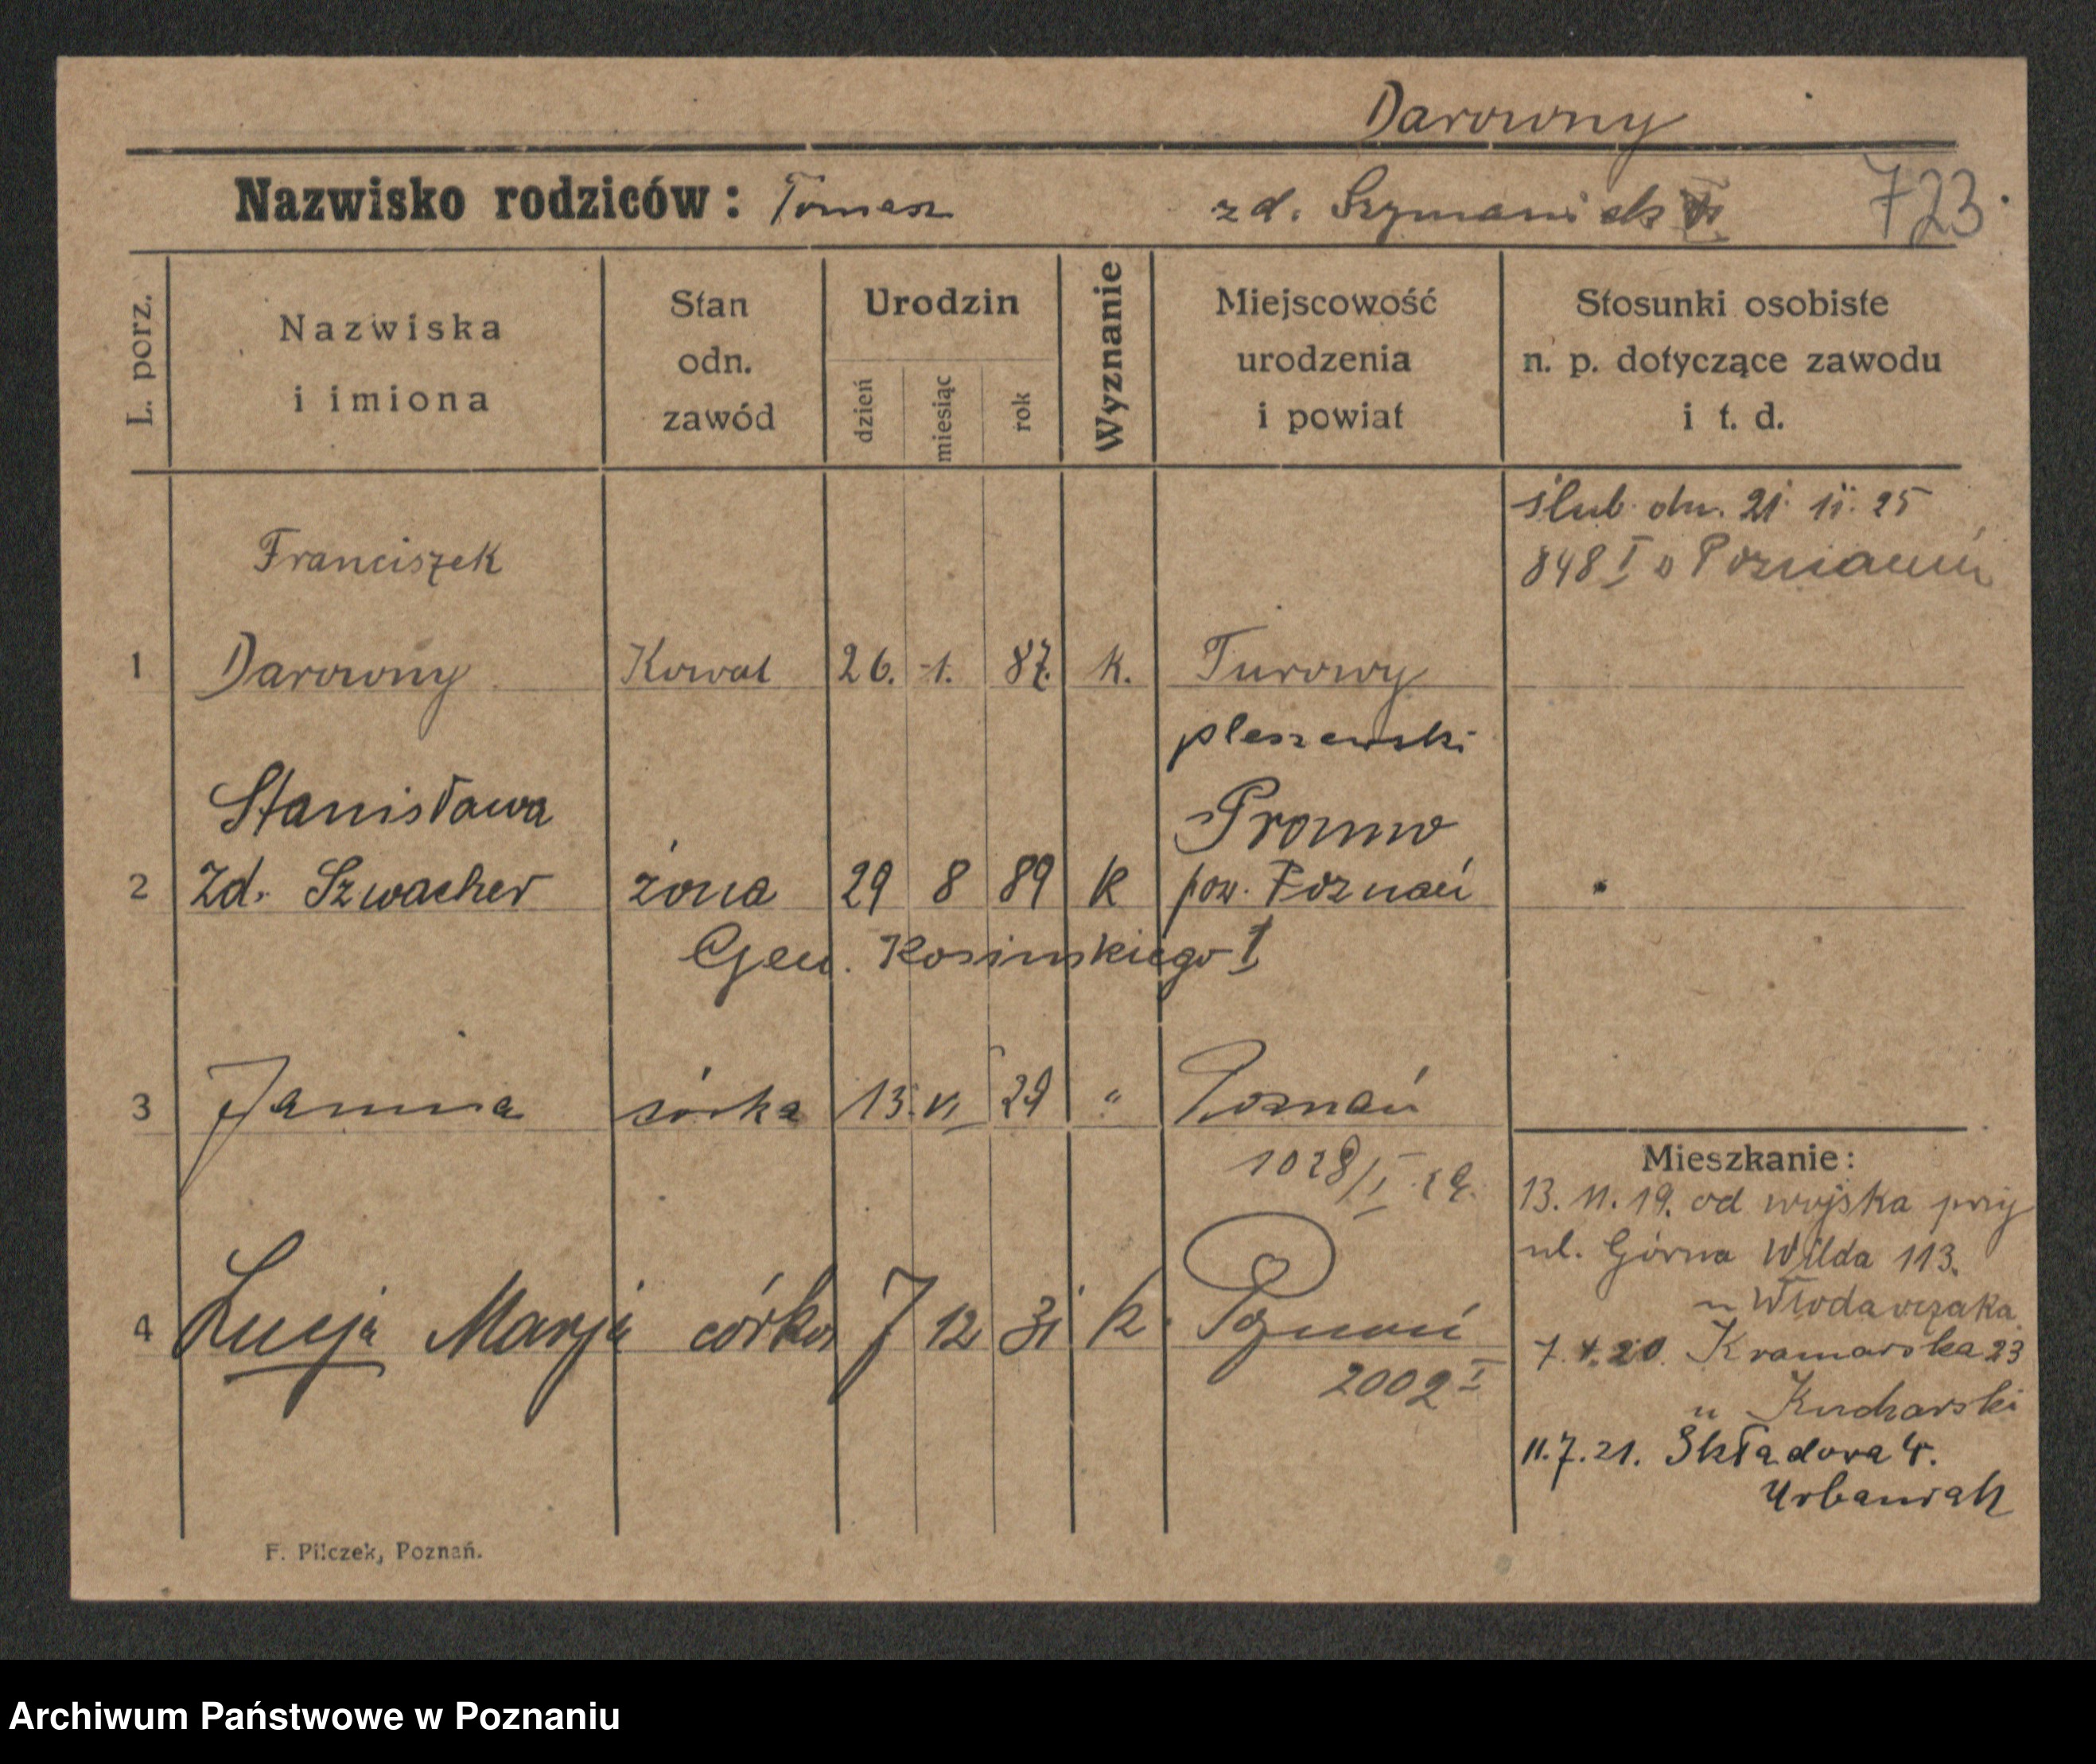 Darowny
Nazwisko rodziców: Tomasz zd. Szymaniak 723.
L. porz.
Nazwiska
i imiona
Stan
odn.
zawód
Urodzin
dzień
miesiąc
rok
Wyznanie
Miejscowość
urodzenia
i powiat
Stosunki osobiste
n. p. dotyczące zawodu
i t. d.
ślub dn. 21. 11. 25
848 I Poznaniu
Franciszek
1 Darowny Kowal 26. 1. 87. k. Turowy
pleszewski
Stanisława Promno
2 zd. Szwacher żona 29 8 89 k pow. Poznań
Gen. Kosinskiego 1
3 Janina córka 13. VI 29 " Poznań
1028/I 29.
4 Lucja Marja córka 7 12 31 k. Poznań
2002 I
Mieszkanie:
13. 11. 19. od wojska przy
ul. Górna Wilda 113.
u Włodarczaka
7. 4. 20. Kramarska 23
u Kucharski
11. 7. 21. Składova 4.
Urbaniak
F. Pilczek, Poznań.
Archiwum Państwowe w Poznaniu